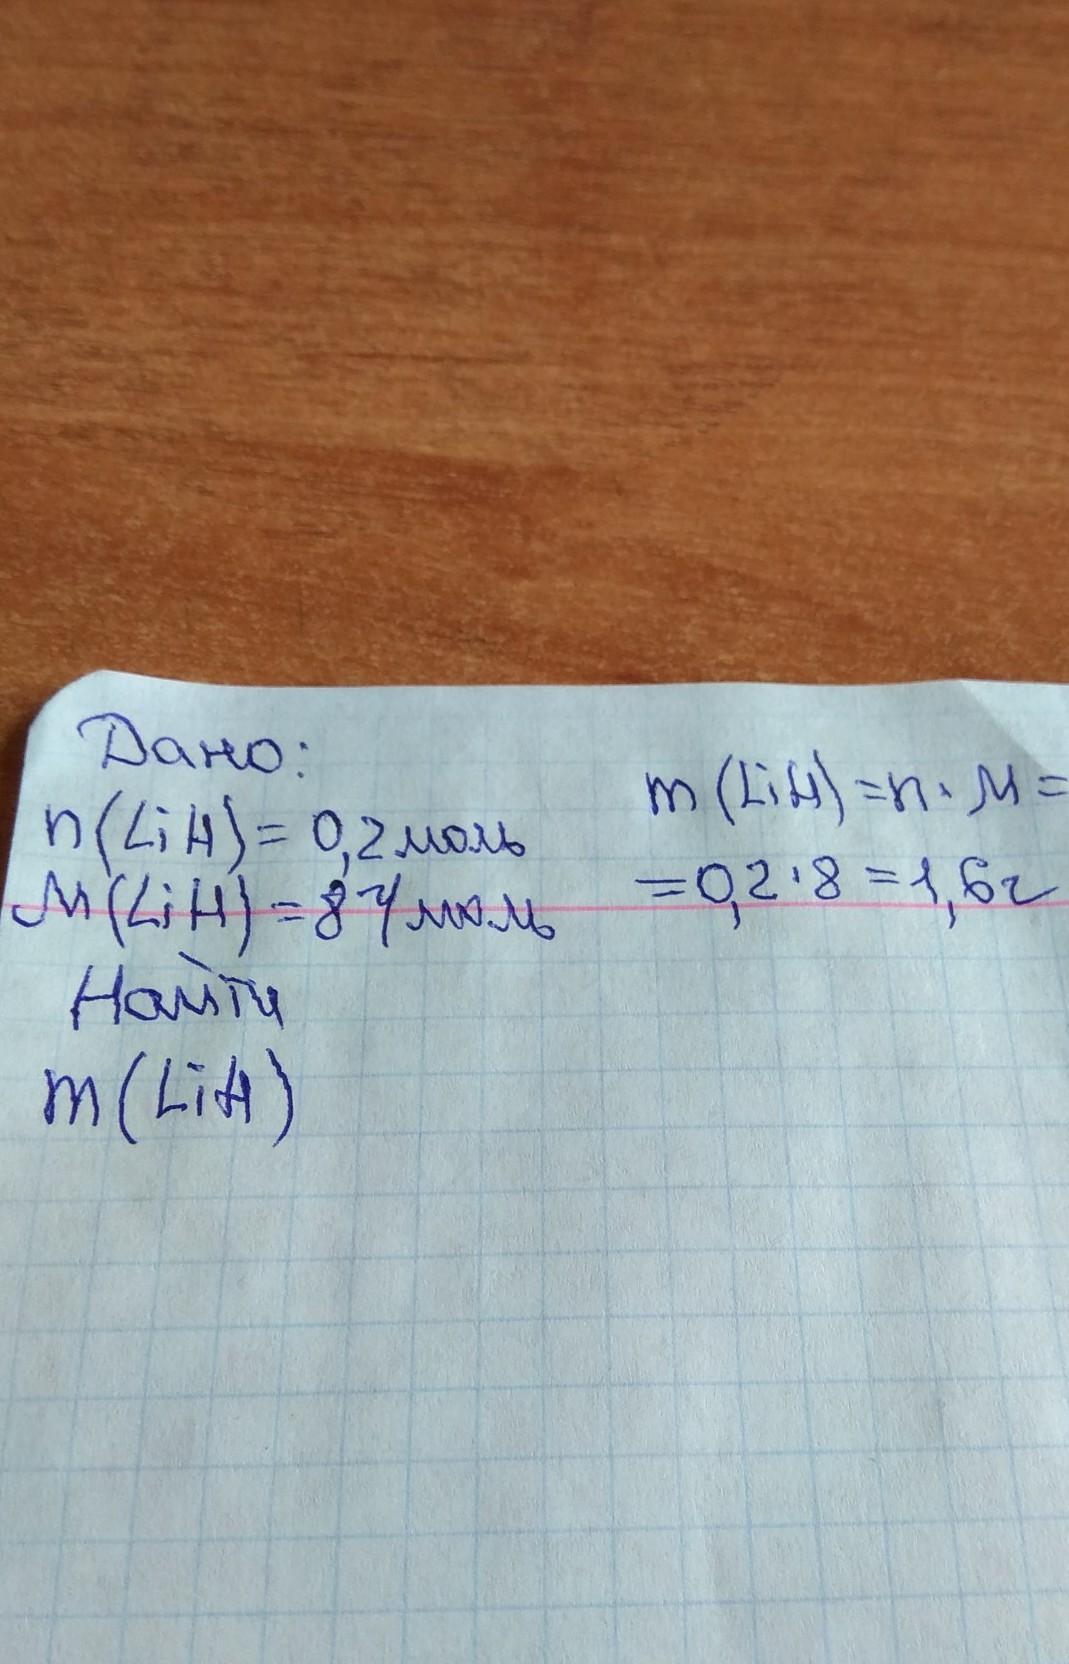 Дано:
n(LiH) = 0,2 моль
M(LiH) = 8 г/моль
Найти
m(LiH)
m(LiH) = n · M =
= 0,2 · 8 = 1,6 г